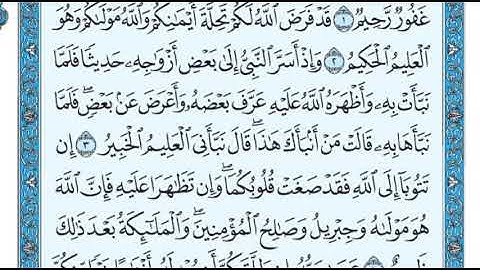 غَفُورٌ رَّحِيمٌ ١ قَدْ فَرَضَ ٱللَّهُ لَكُمْ تَحِلَّةَ أَيْمَٰنِكُمْ وَٱللَّهُ مَوْلَىٰكُمْ وَهُوَ
ٱلْعَلِيمُ ٱلْحَكِيمُ ٢ وَإِذْ أَسَرَّ ٱلنَّبِىُّ إِلَىٰ بَعْضِ أَزْوَٰجِهِۦ حَدِيثًا فَلَمَّا
نَبَّأَتْ بِهِۦ وَأَظْهَرَهُ ٱللَّهُ عَلَيْهِ عَرَّفَ بَعْضَهُۥ وَأَعْرَضَ عَنۢ بَعْضٍ ۖ فَلَمَّا
نَبَّأَهَا بِهِۦ قَالَتْ مَنْ أَنۢبَأَكَ هَٰذَا ۖ قَالَ نَبَّأَنِىَ ٱلْعَلِيمُ ٱلْخَبِيرُ ٣ إِن
تَتُوبَآ إِلَى ٱللَّهِ فَقَدْ صَغَتْ قُلُوبُكُمَا ۖ وَإِن تَظَٰهَرَا عَلَيْهِ فَإِنَّ ٱللَّهَ
هُوَ مَوْلَىٰهُ وَجِبْرِيلُ وَصَٰلِحُ ٱلْمُؤْمِنِينَ ۖ وَٱلْمَلَٰٓئِكَةُ بَعْدَ ذَٰلِكَ